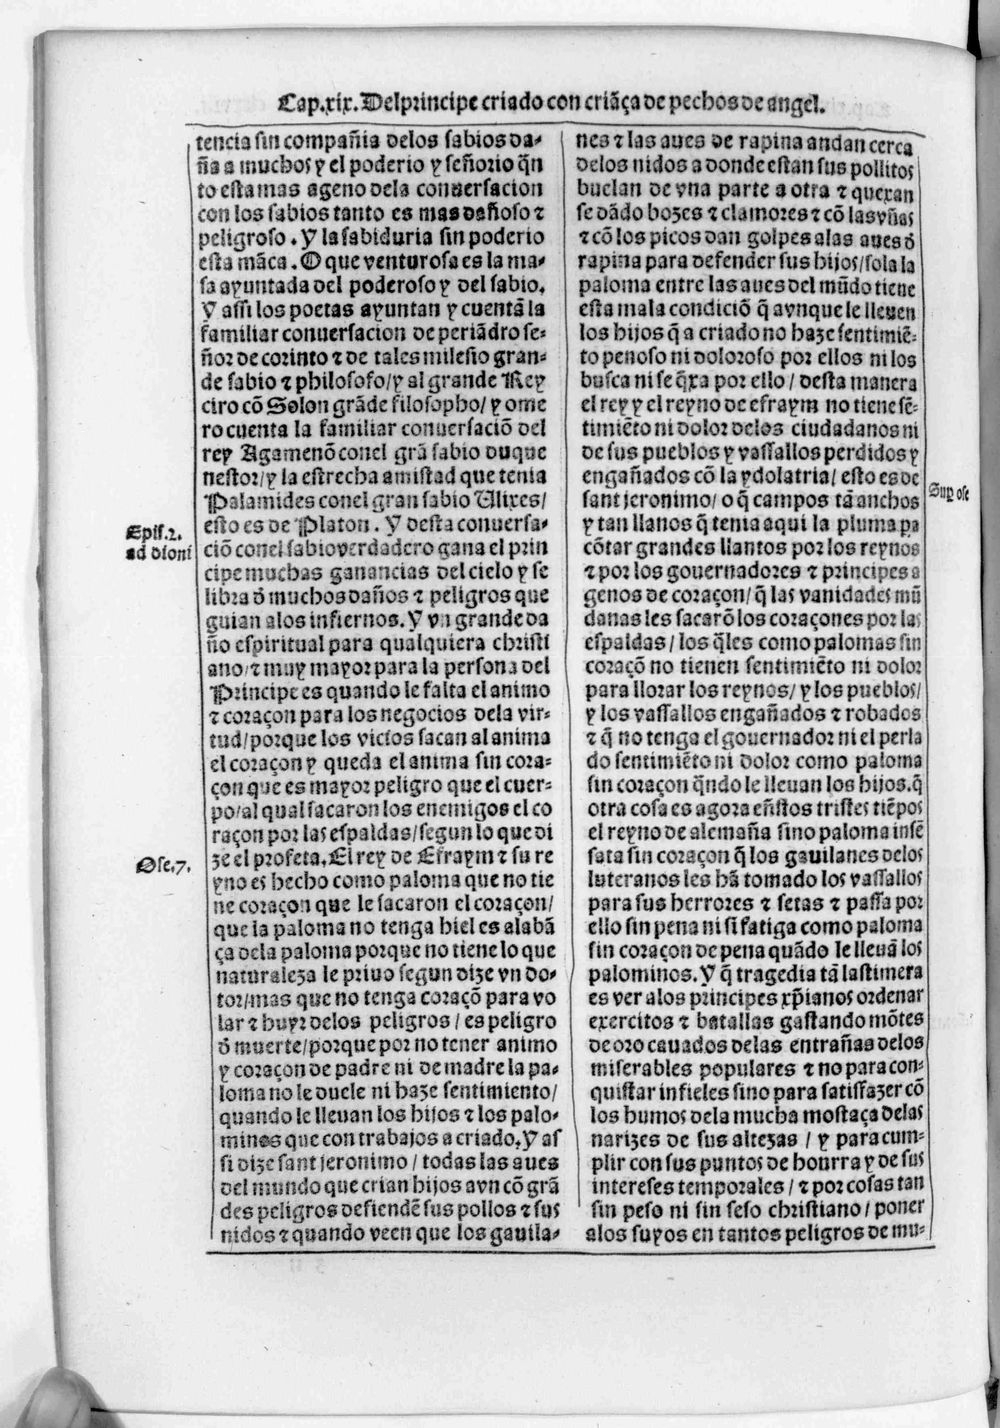 Cap.xix. Del principe criado con criãça de pechos de angel.
tencia sin compañia delos sabios da-
ña a muchos y el poderio y señorio q̃n
to esta mas ageno dela conuersacion
con los sabios tanto es mas dañoso ⁊
peligroso. Y la sabiduria sin poderio
esta mãca. O que venturosa es la ma-
sa ayuntada del poderoso y del sabio.
Y assi los poetas ayuntan y cuentã la
familiar conuersacion de periãdro se-
ñor de corinto ⁊ de tales milesio gran-
de sabio ⁊ philosofo/y al grande Rey
ciro cõ Solon grãde filosopho/ y ome
ro cuenta la familiar conuersaciõ del
rey Agamenõ conel grã sabio duque
nestor/y la estrecha amistad que tenia
Palamides conel gran sabio Ulixes/
esto es de Platon. Y desta conuersa-
Epis.2.
ad dioni
ciõ conel sabio verdadero gana el prin
cipe muchas ganancias del cielo y se
libra õ muchos daños ⁊ peligros que
guian alos infiernos. Y vn grande da
ño espiritual para qualquiera christi
ano/⁊ muy mayor para la persona del
Principe es quando le falta el animo
⁊ coraçon para los negocios dela vir-
tud/porque los vicios sacan al anima
el coraçon y queda el anima sin cora-
çon que es mayor peligro que el cuer-
po/al qual sacaron los enemigos el co
raçon por las espaldas/segun lo que di
Ose.7.
ze el profeta. El rey de Efraym ⁊ su re
yno es hecho como paloma que no tie
ne coraçon que le sacaron el coraçon/
que la paloma no tenga hiel es alabã
ça dela paloma porque no tiene lo que
naturaleza le priuo segun dize vn do-
tor/mas que no tenga coraçõ para vo
lar ⁊ huyr delos peligros/ es peligro
õ muerte/porque por no tener animo
y coraçon de padre ni de madre la pa-
loma no le duele ni haze sentimiento/
quando le lleuan los hijos ⁊ los palo-
minos que con trabajos a criado. Y as
si dize sant jeronimo/ todas las aues
del mundo que crian hijos avn cõ grã
des peligros defiendẽ sus pollos ⁊ sus
nidos ⁊ quando veen que los gauila-
nes ⁊ las aues de rapina andan cerca
delos nidos a donde estan sus pollitos
buelan de vna parte a otra ⁊ quexan
se dãdo bozes ⁊ clamores ⁊ cõ las vñas
⁊ cõ los picos dan golpes alas aues õ
rapina para defender sus hijos/sola la
paloma entre las aues del mũdo tiene
esta mala condiciõ q̃ avnque le lleuen
los hijos q̃ a criado no haze sentimiẽ-
to penoso ni doloroso por ellos ni los
busca ni se q̃xa por ello/ desta manera
el rey y el reyno de efraym no tiene sẽ-
timiẽto ni dolor delos ciudadanos ni
de sus pueblos y vassallos perdidos y
engañados cõ la ydolatria/ esto es de
Sup ose
sant jeronimo/ o q̃ campos tã anchos
y tan llanos q̃ tenia aqui la pluma pa
cõtar grandes llantos por los reynos
⁊ por los gouernadores ⁊ principes a
genos de coraçon/ q̃ las vanidades mũ
danas les sacarõ los coraçones por las
espaldas/ los q̃les como palomas sin
coraçõ no tienen sentimiẽto ni dolor
para llorar los reynos/ y los pueblos/
y los vassallos engañados ⁊ robados
⁊ q̃ no tenga el gouernador ni el perla
do sentimiẽto ni dolor como paloma
sin coraçon q̃ndo le lleuan los hijos. q̃
otra cosa es agora eñstos tristes tiẽpos
el reyno de alemaña sino paloma insẽ
sata sin coraçon q̃ los gauilanes delos
luteranos les hã tomado los vassallos
para sus herrores ⁊ setas ⁊ passa por
ello sin pena ni si fatiga como paloma
sin coraçon de pena quãdo le lleuã los
palominos. Y q̃ tragedia tã lastimera
es ver alos principes xp̃ianos ordenar
exercitos ⁊ batallas gastando mõtes
de oro cauados delas entrañas delos
miserables populares ⁊ no para con-
quistar infieles sino para satisfazer cõ
los humos dela mucha mostaça delas
narizes de sus altezas/ y para cum-
plir con sus puntos de honrra y de sus
intereses temporales/ ⁊ por cosas tan
sin peso ni sin seso christiano/ poner
alos suyos en tantos peligros de mu-